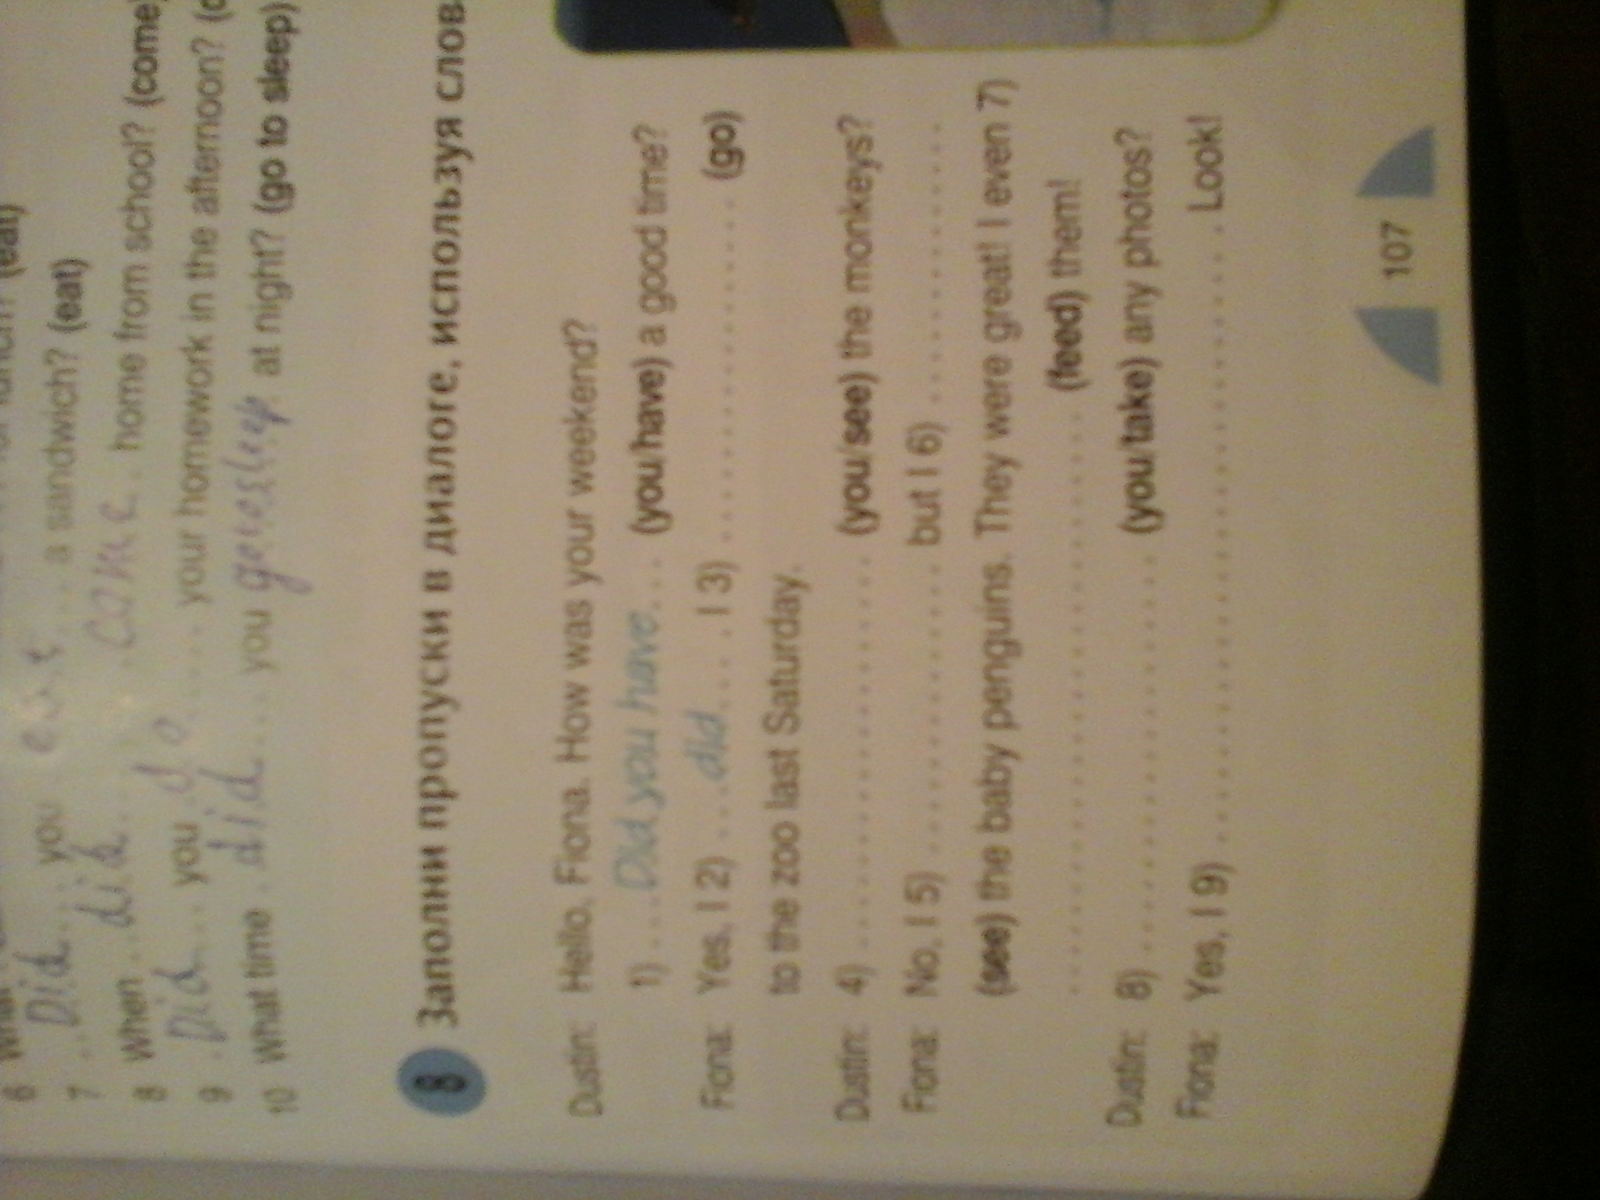 6
7 ..Did.... you eat.... a sandwich? (eat)
8 When ...did... .come.. home from school? (come)
9 .Did.... you do..... your homework in the afternoon?
10 What time .did.... you at night? (go to sleep)
8 Заполни пропуски в диалоге, используя слов
Dustin: Hello, Fiona. How was your weekend?
1) ...Did you have.... (you/have) a good time?
Fiona: Yes, I 2) ....did..... I 3) .................... (go)
to the zoo last Saturday.
Dustin: 4) ........................... (you/see) the monkeys?
Fiona: No, I 5) .................... but I 6) ....................
(see) the baby penguins. They were great! I even 7)
........................................ (feed) them!
Dustin: 8) ........................... (you/take) any photos?
Fiona: Yes, I 9) ........................................ . Look!
107